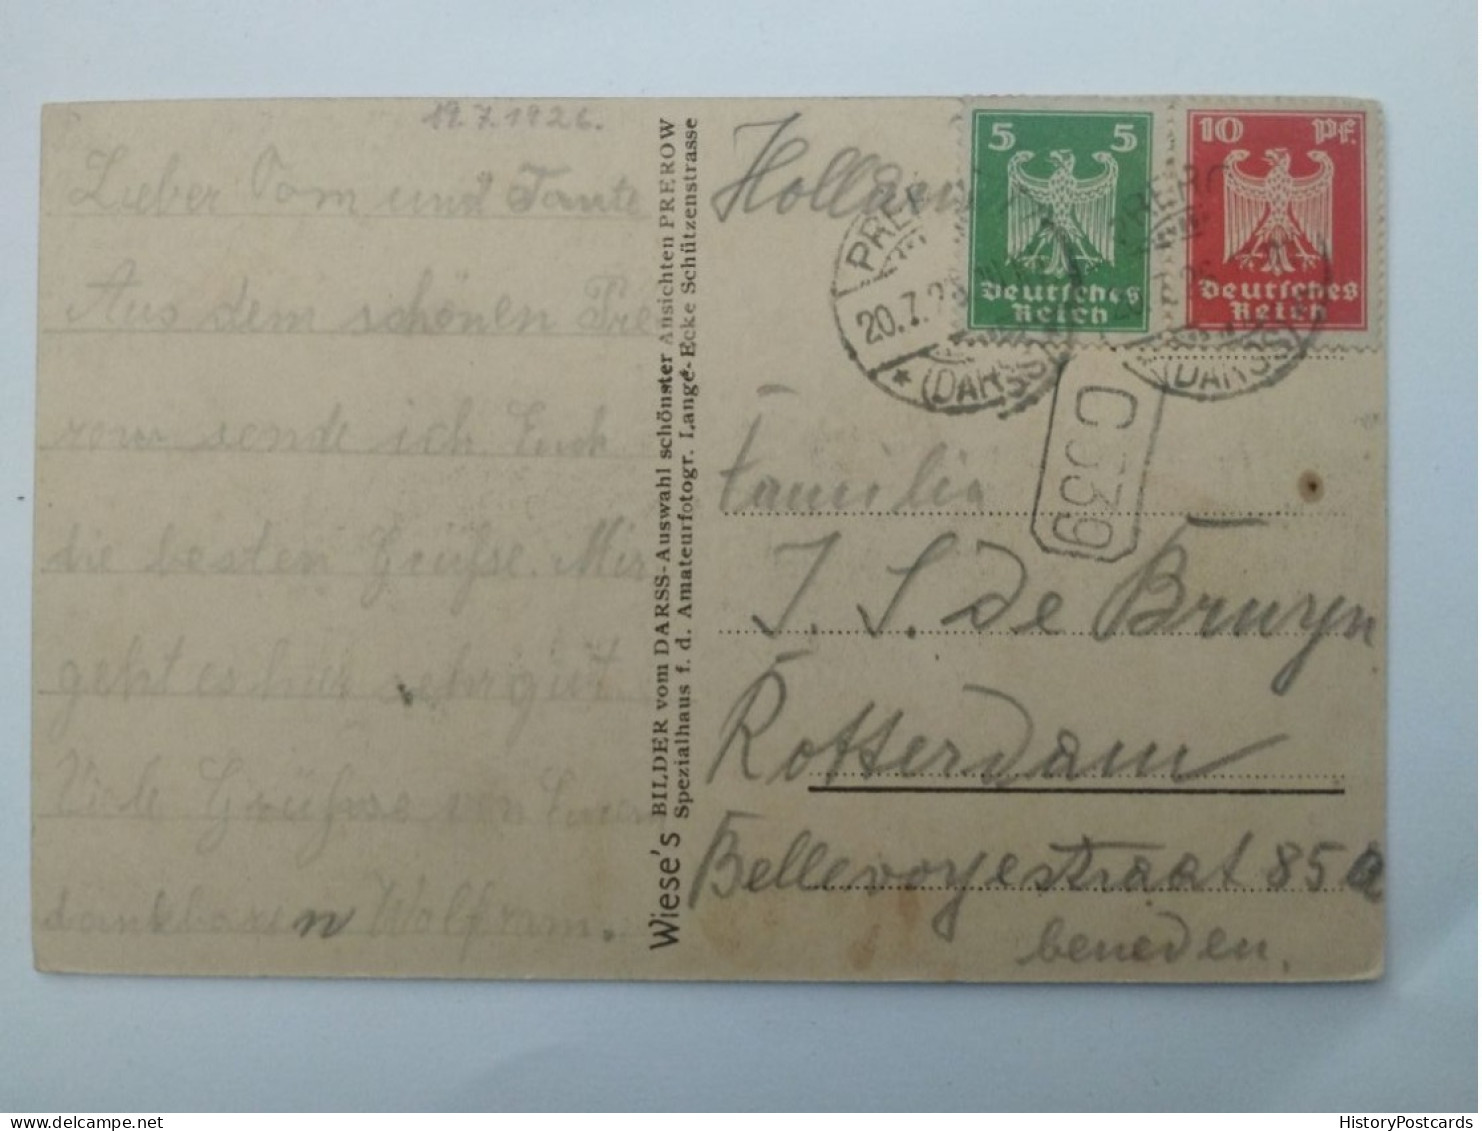 19.7.1926.
Lieber Tom und Tante
Aus dem schönen Pre
row sende ich Euch
die besten Grüße. Mir
geht es hier sehr gut.
Viele Grüsse von Eurem
dankbaren Wolfram.
Wiese's BILDER vom DARSS-Auswahl schönster Ansichten PREROW
Spezialhaus f. d. Amateurfotogr. Lange-Ecke Schützenstrasse
Holland
5 5
Deutsches
Reich
10 Pf.
Deutsches
Reich
20.7.26
(DARSS)
(DARSS)
C339
Familie
J. S. de Bruyn
Rotterdam
Bellevoyestraat 85a
beneden.
HistoryPostcards.com